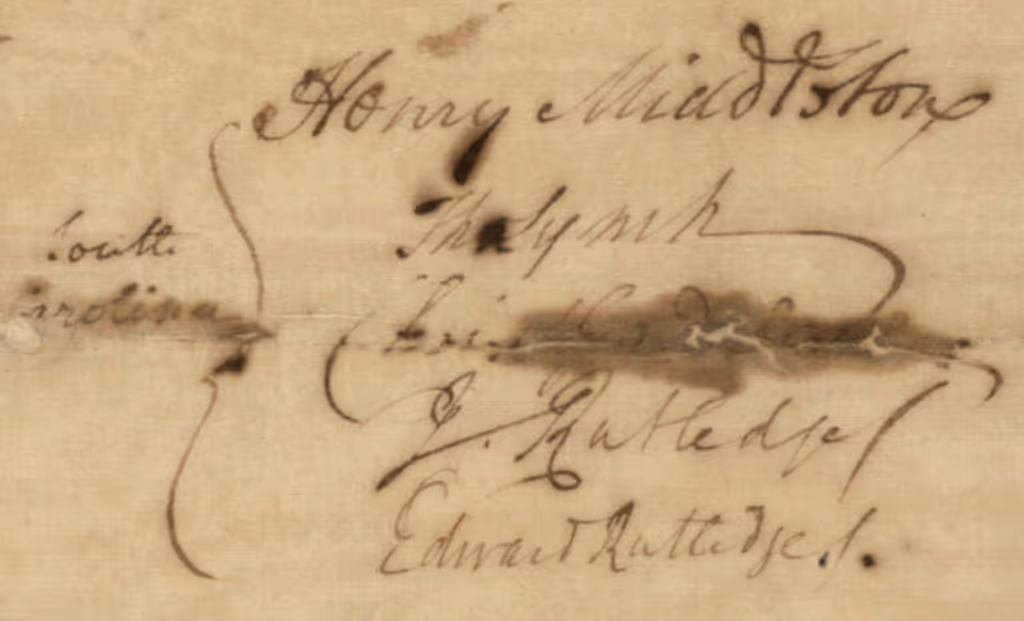 Henry Middleton
South
Carolina
Tho Lynch
J. Rutledge
Edward Rutledge.